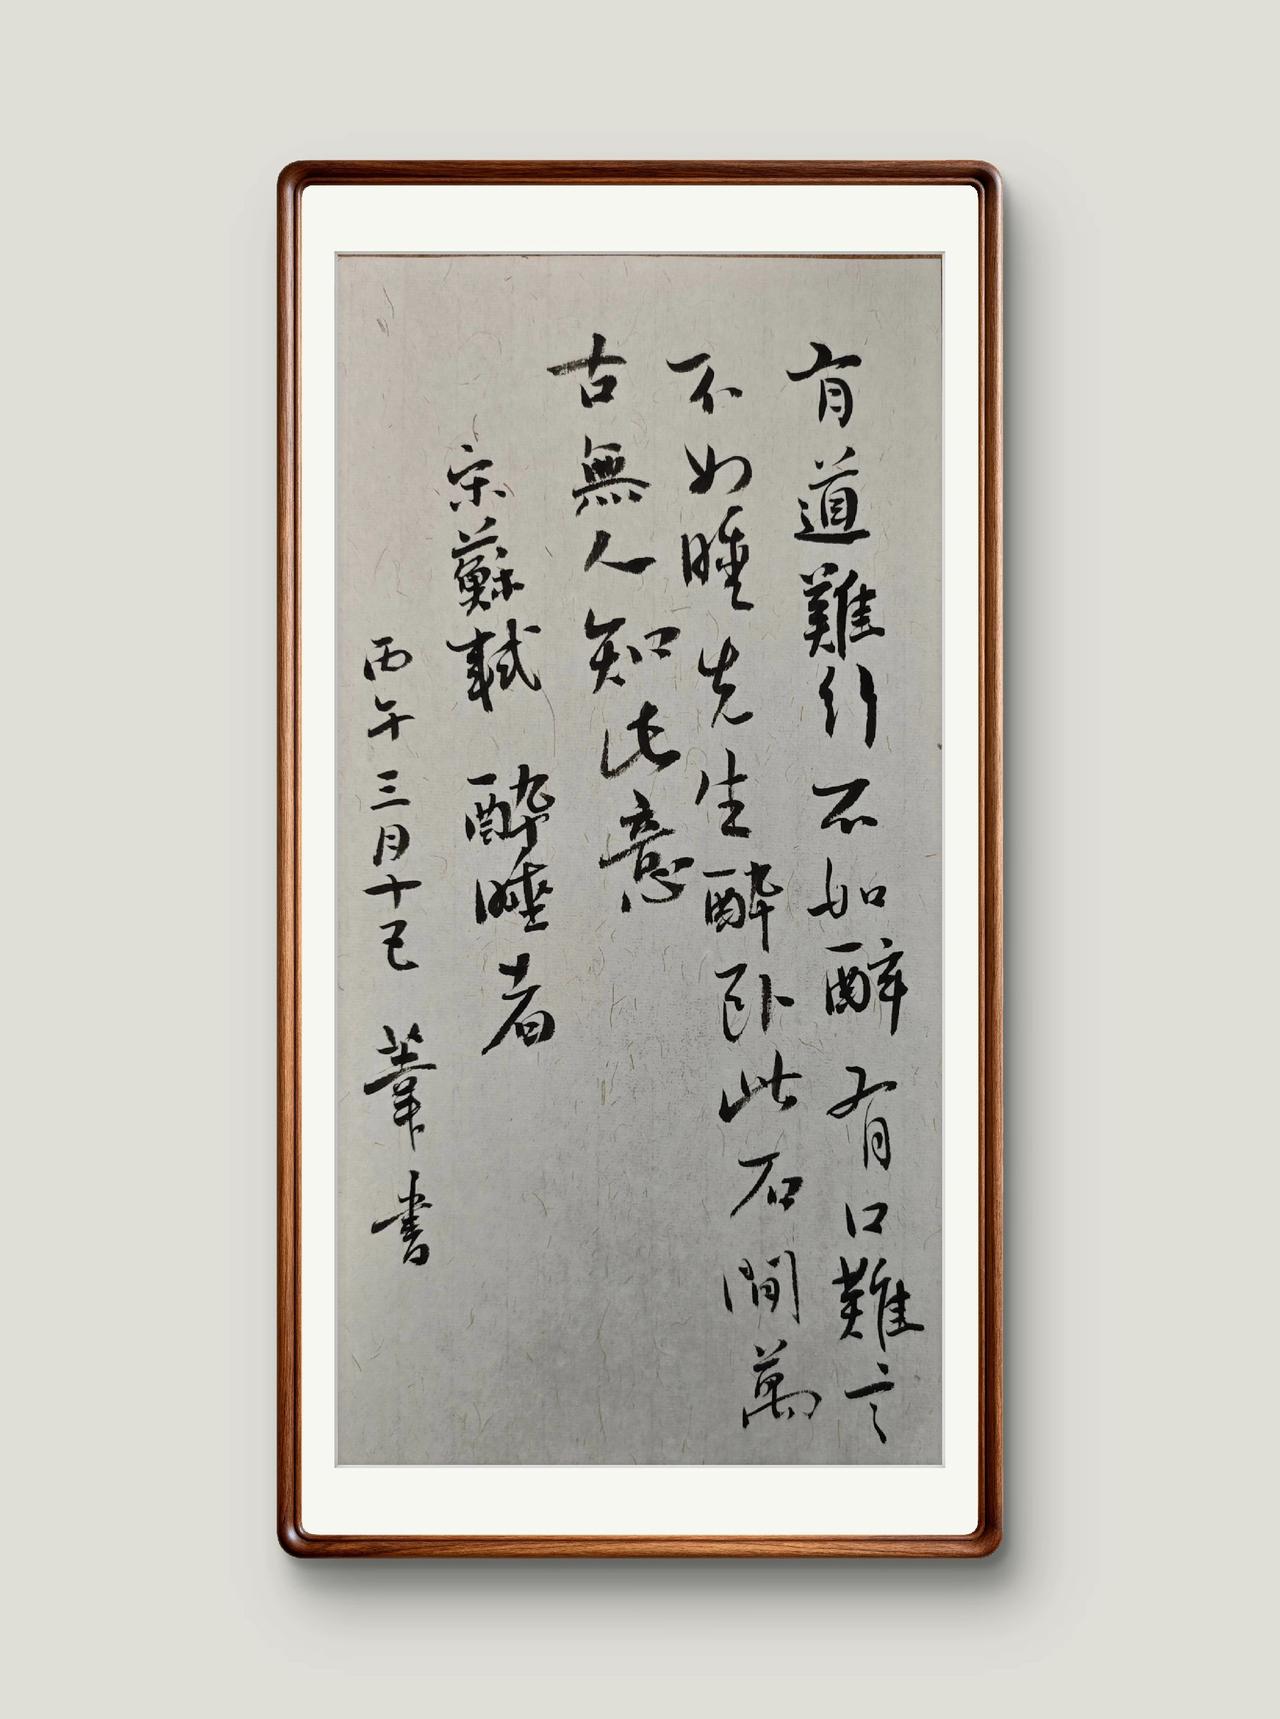 有道難行不如醉有口難言
不如睡先生醉卧此石間萬
古無人知此意
宋蘇軾 醉睡者
丙午三月十巳 葦書